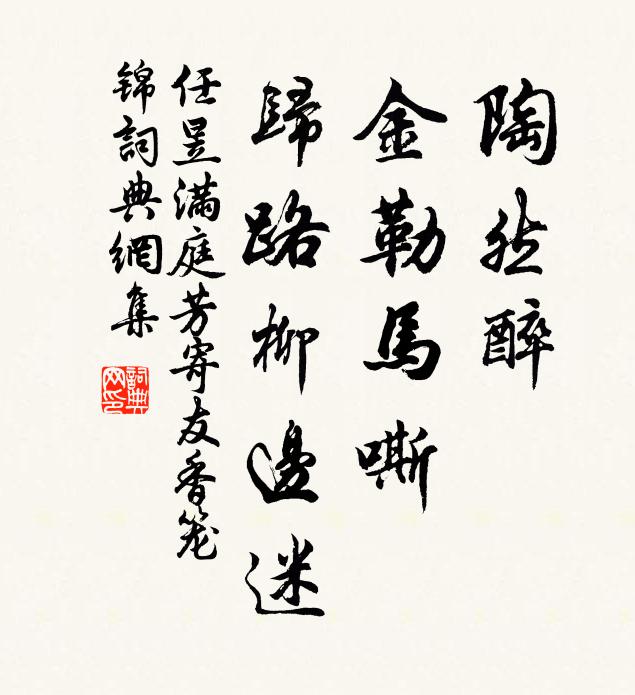 陶然醉
金勒馬嘶
歸路柳邊迷
任昱滿庭芳寄友香籠
錦詞典網集
詞典
网印